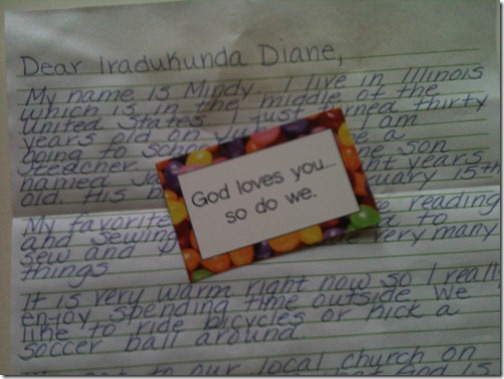 Dear Iradukunda Diane,
My name is Mindy. I live in Illinois
which is in the middle of the
United States. I just turned thirty
years old on I am
going to school a
teacher. one son
named eight years
old. His 15th
My favorite reading
and sewing. to
sew and very many
things
It is very warm right now so I really
enjoy spending time outside. We
like to ride bicycles or kick a
soccer ball around.
to our local church on
God is
God loves you...
so do we.